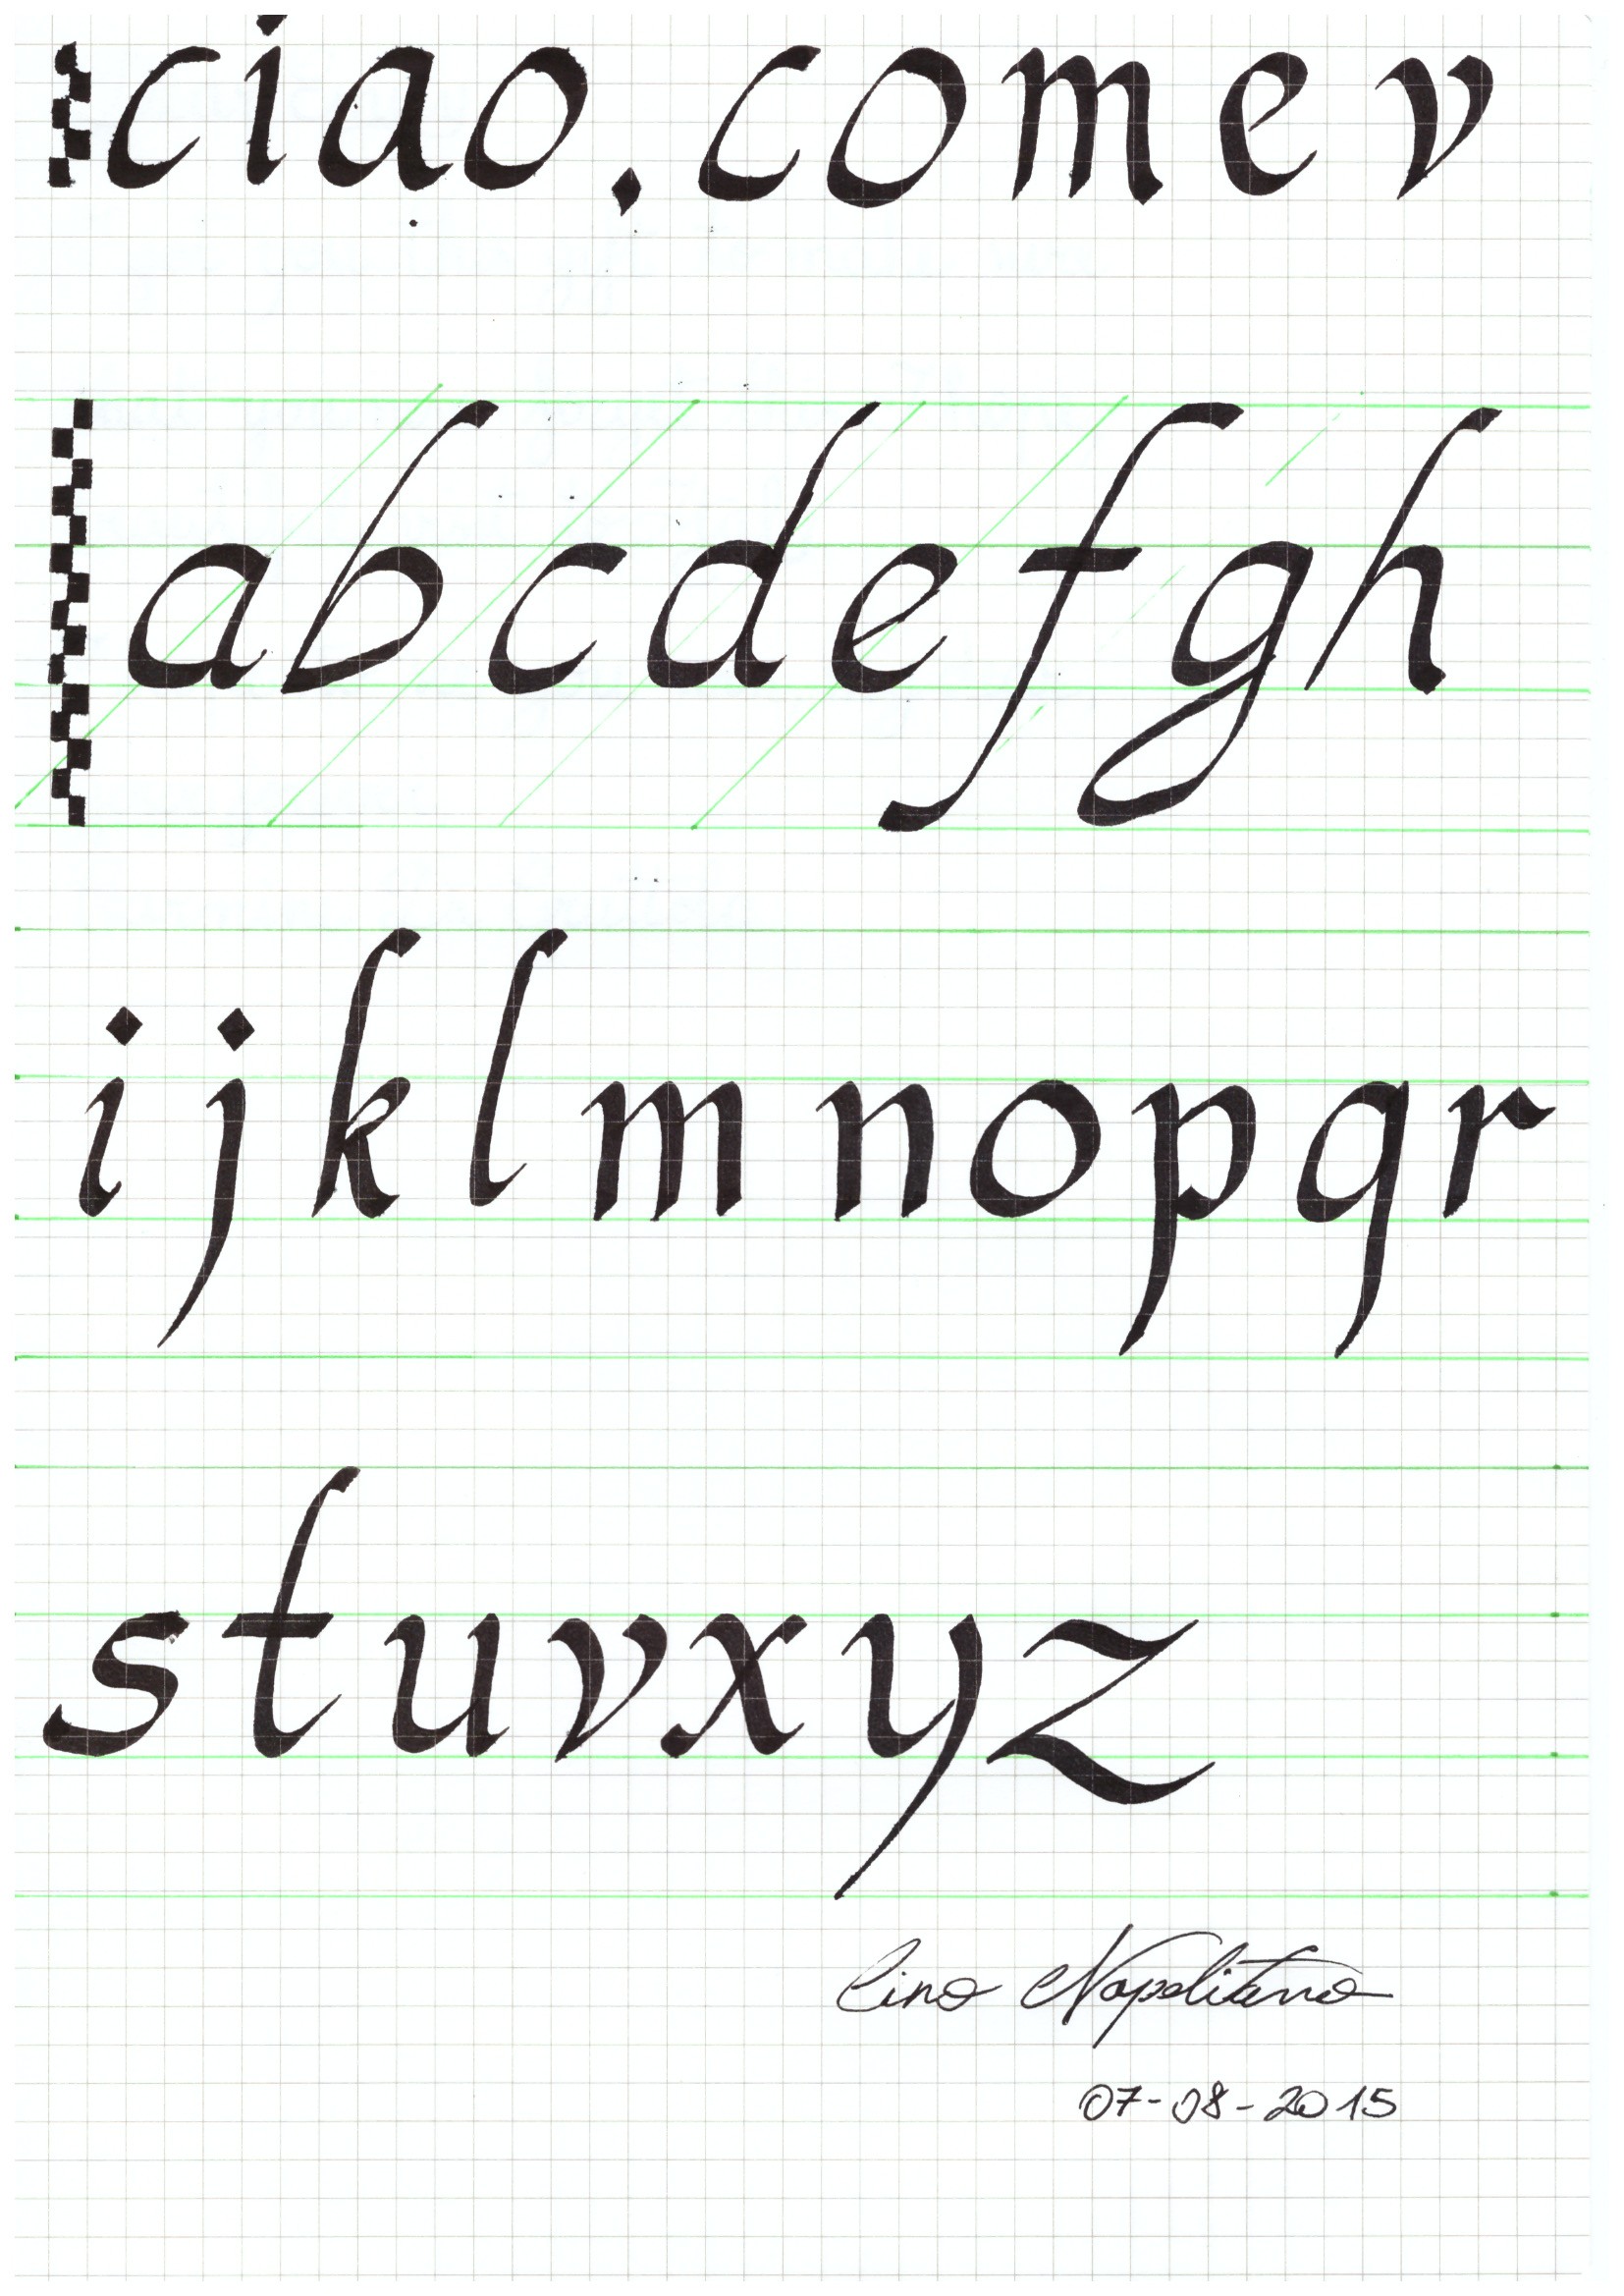 ciao. come v
abcdefgh
ijklmnopqr
stuvxyz
Cino Napolitano
07-08-2015